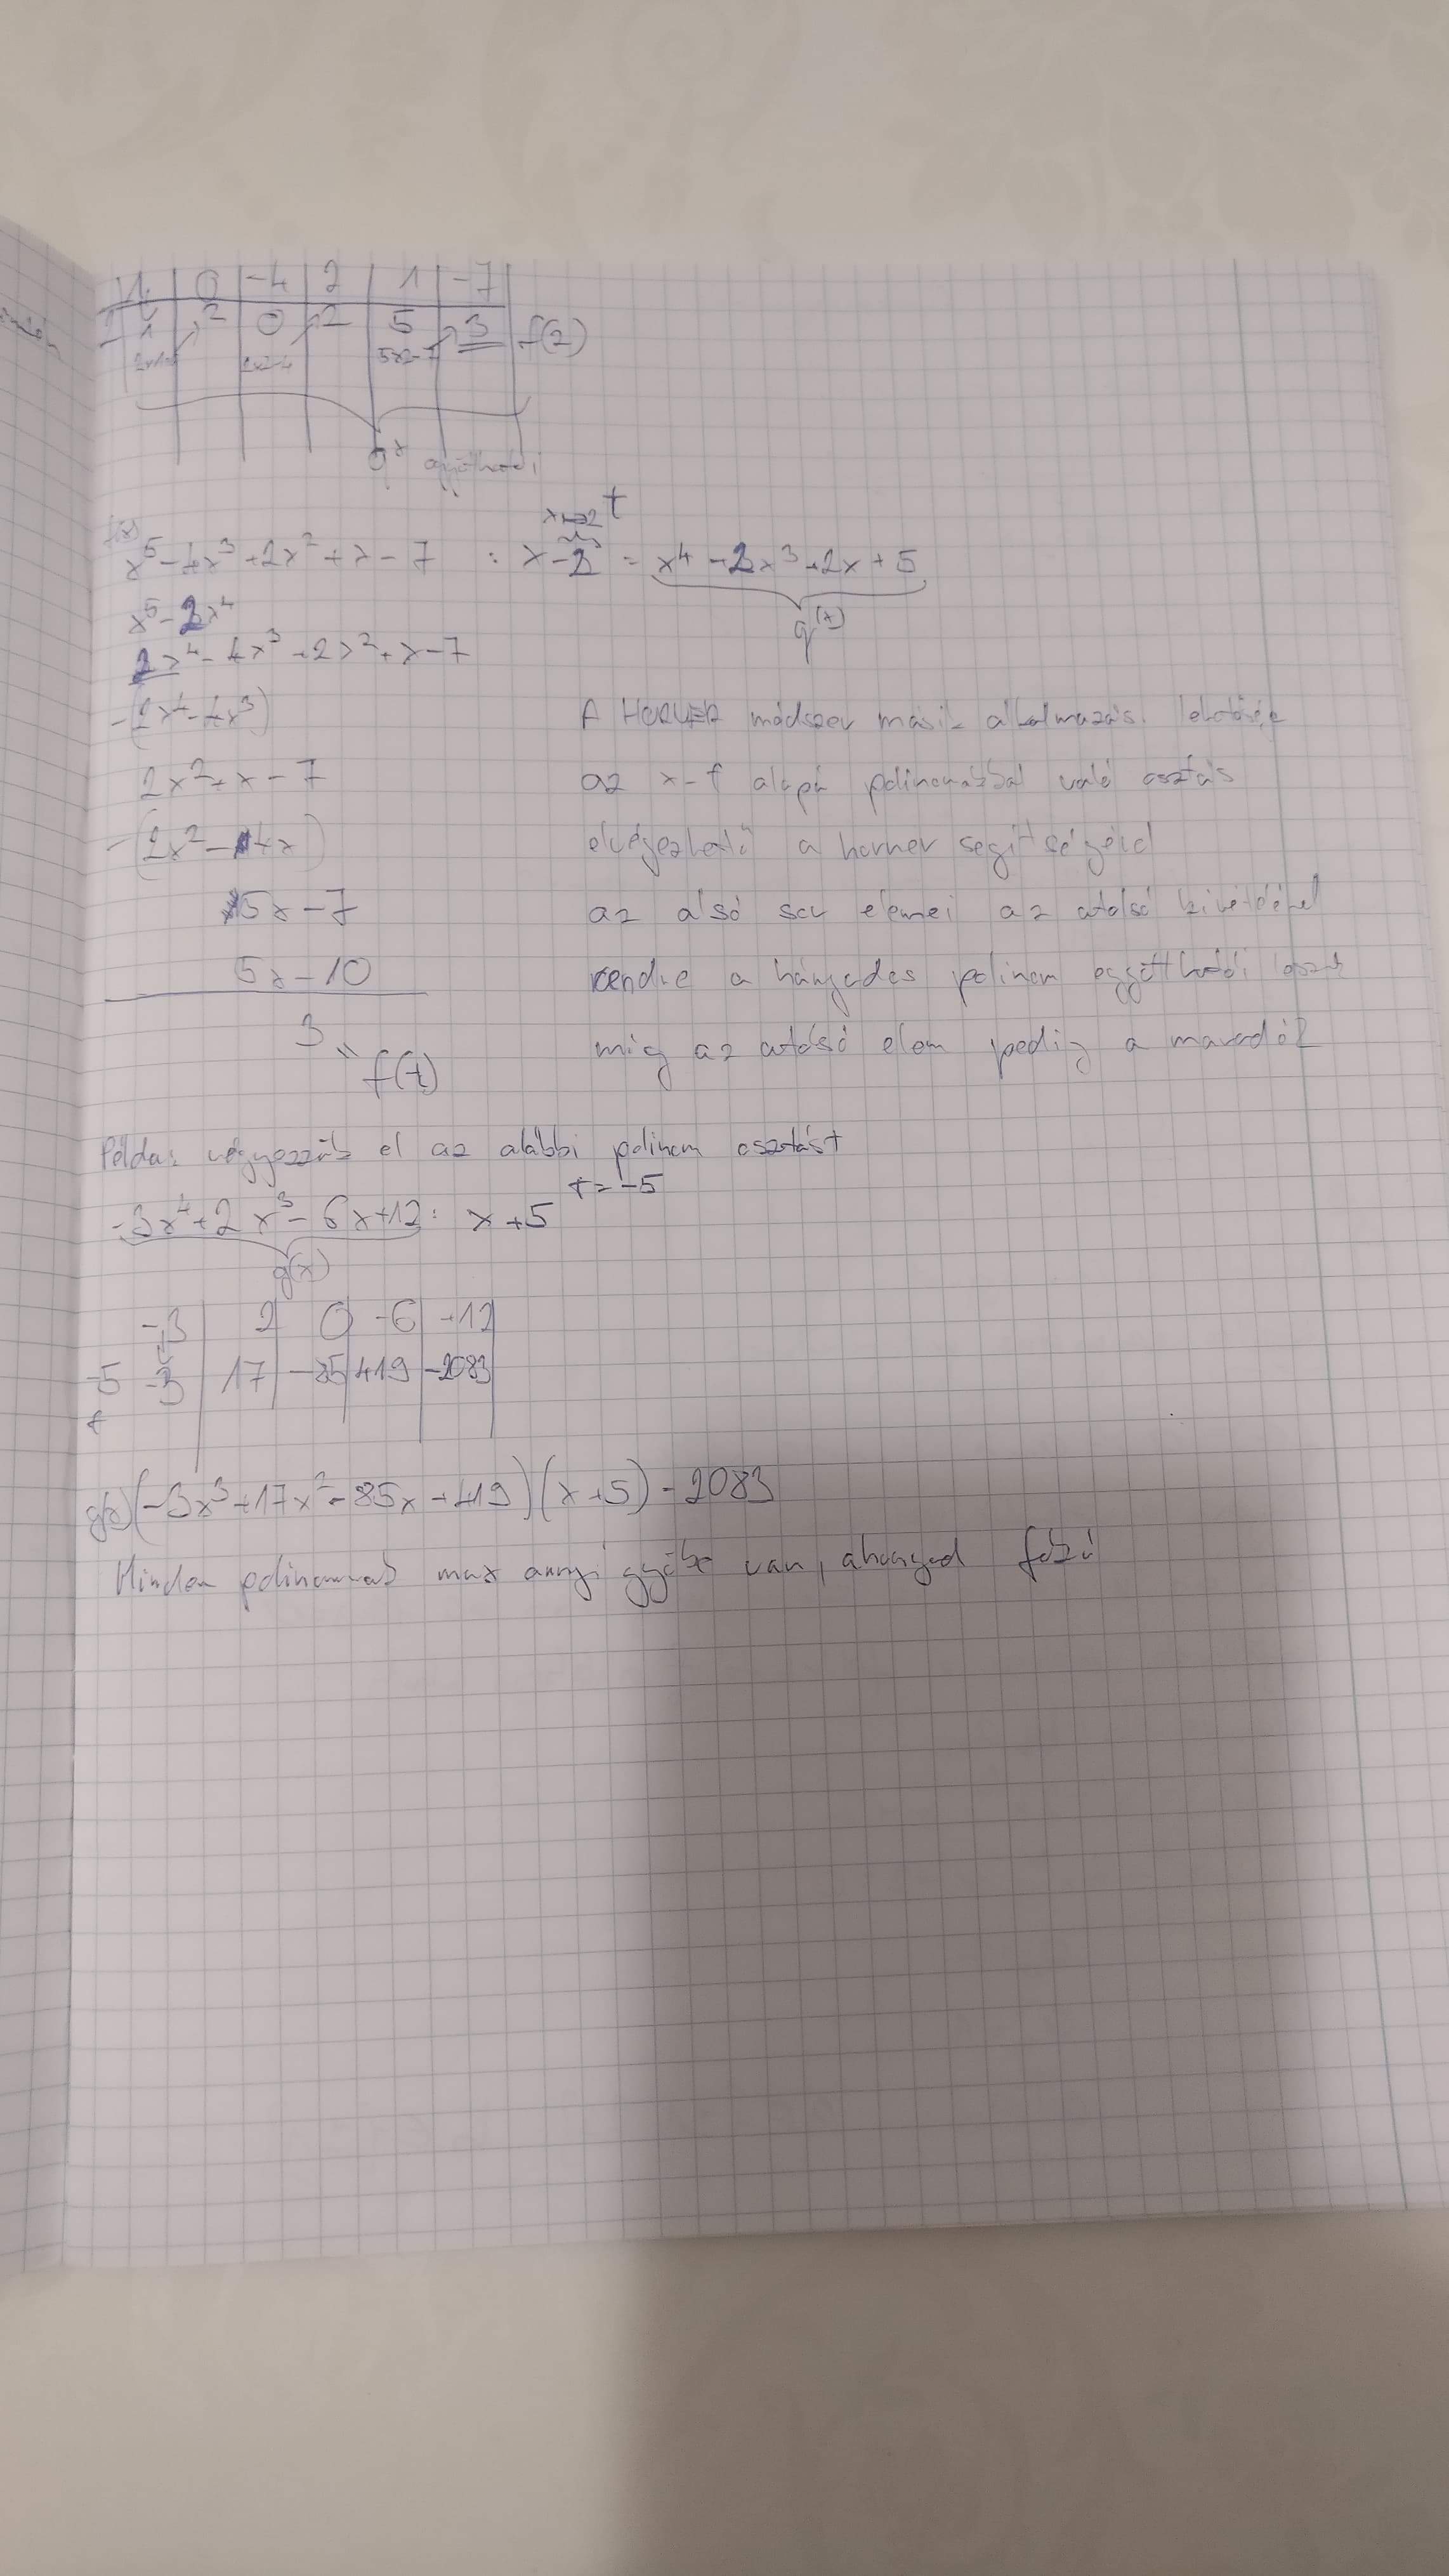 1 | 0 | -4 | 2 | 1 | -7
2 | 1 | 2 | 0 | 2 | 5 | 3 | f(2)
5x2-7
q
f(x)
t
x⁵-4x³+2x²+x-7 : x-2 = x⁴-2x³+2x+5
x⁵-2x⁴
q(x)
2x⁴-4x³+2x²+x-7
-(2x⁴-4x³)
A HORNER módszer másik alkalmazási lehetősége
2x²+x-7
az x-t alapú polinommal való osztás
-(2x²-4x)
elvégezhető a horner segítségével
5x-7
az alsó sor elemei az utolsó kivételével
5x-10
rendre a hányados polinom együtthatói lesznek
3
míg az utolsó elem pedig a maradék
f(t)
Példa: végezzük el az alábbi polinom osztást
t=-5
-3x⁴+2x³-6x+12 : x+5
g(x)
-3 | 2 | 0 | -6 | +12
-5 -3 | 17 | -85 | 419 | -2083
t
g(x)(-3x³+17x²-85x+419)(x+5)-2083
Minden polinomnak max annyi gyöke van, ahanyad fokú